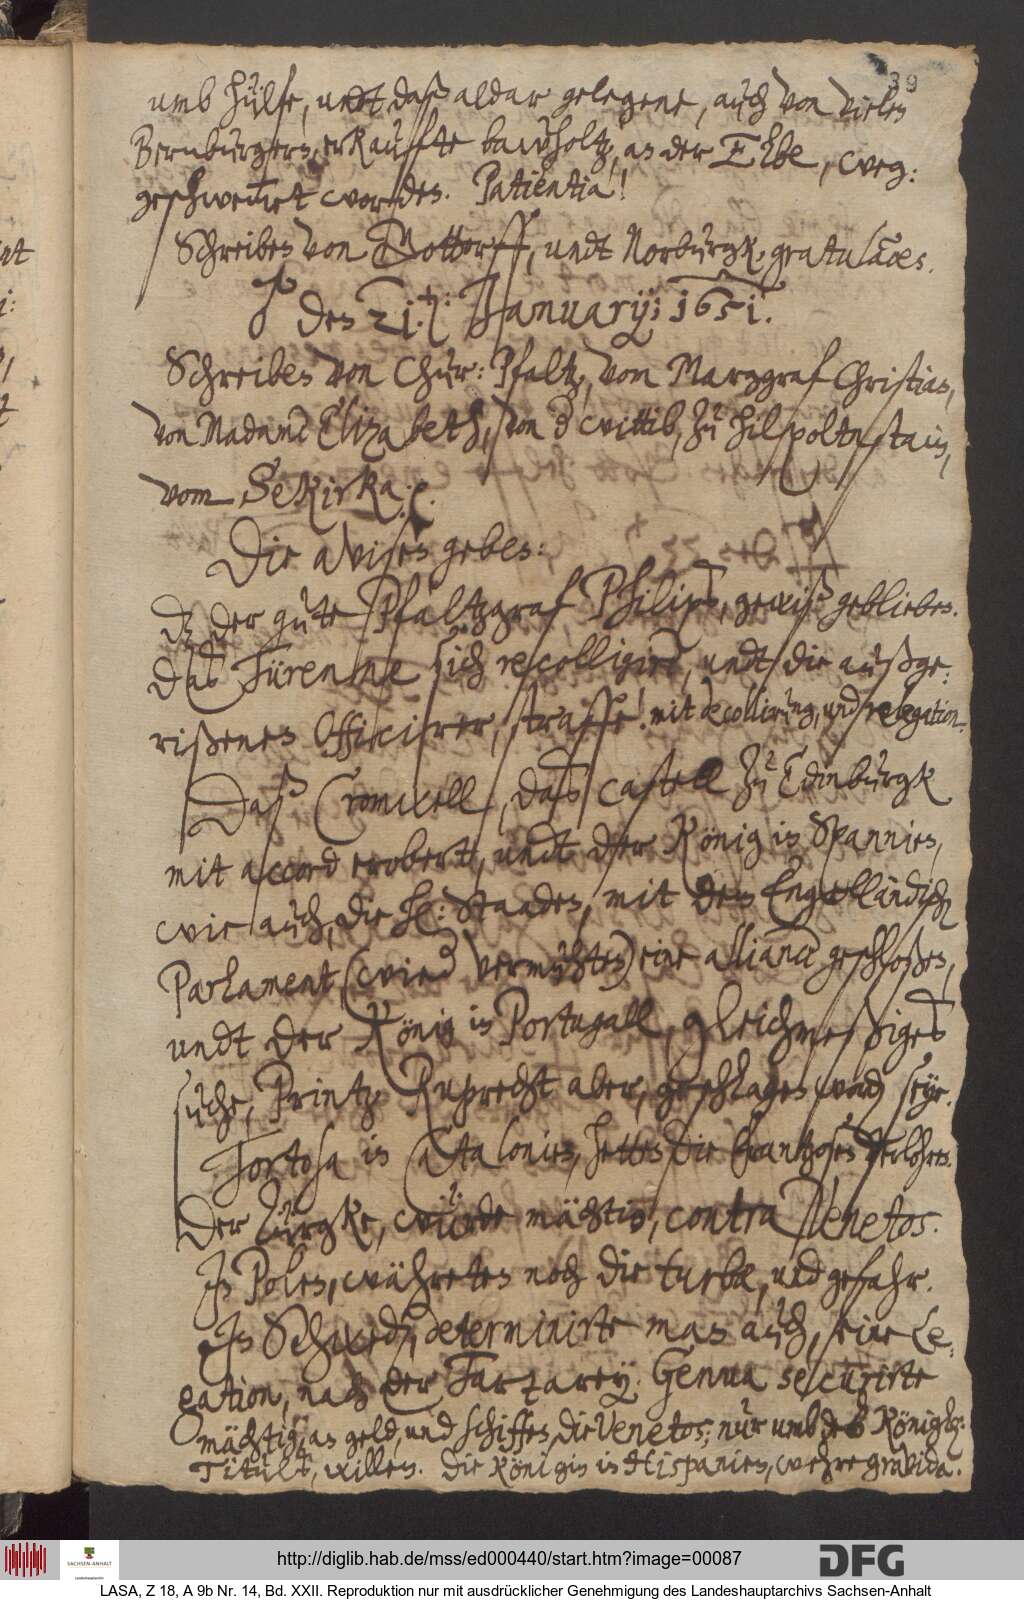 39
umb hülfe, undt daß aldar gelegene, auch von vielen
Bernburgern, erkauffte bawholtz, an der Elbe, weg:
geschwemmet worden. Patientia!
Schreiben von Gottorff, undt Norburgk, gratulatoires.
den 21. Januarij: 1651.
Schreiben von Chur: Pfaltz, vom Marggraf Christian,
von Madame Elizabeth, von der wittib, zu Hilpoltstain,
vom Sekirka.
Die avisen geben:
dz der gute Pfaltzgraf Philips, gewiß geblieben.
das Türenne sich recolligire, undt die außge:
rißenen Officirer, straffe! mit decollirung, und relegation.
Daß Cromwell, das castell zu Edinburgk
mit accord erobert, undt der König in Spannien,
wie auch, die H: Staaden, mit dem Engelländisch
Parlament (wie vermuhten) eine alliance geschloßen,
undt der König in Portugall, gleichmeßiges
suche, Printz Ruprecht aber, geschlagen word seye.
Tortosa in Catalonien, hetten die frantzosen verlohren.
Der Türgke, würde mächtig, contra Venetos.
In Polen, währeten noch die turbæ, und gefahr.
In Schweden determinirte man auch, eine Le:
gation, nach der Tartarey. Genua securirte
mächtig, an geld, und schiffen, die Venetos; nur umb des Königl:
Tituls, willen. Die Königin in Hispanien, wehre gravida.
http://diglib.hab.de/mss/ed000440/start.htm?image=00087
SACHSEN-ANHALT
Landeshauptarchiv
DFG
LASA, Z 18, A 9b Nr. 14, Bd. XXII. Reproduktion nur mit ausdrücklicher Genehmigung des Landeshauptarchivs Sachsen-Anhalt